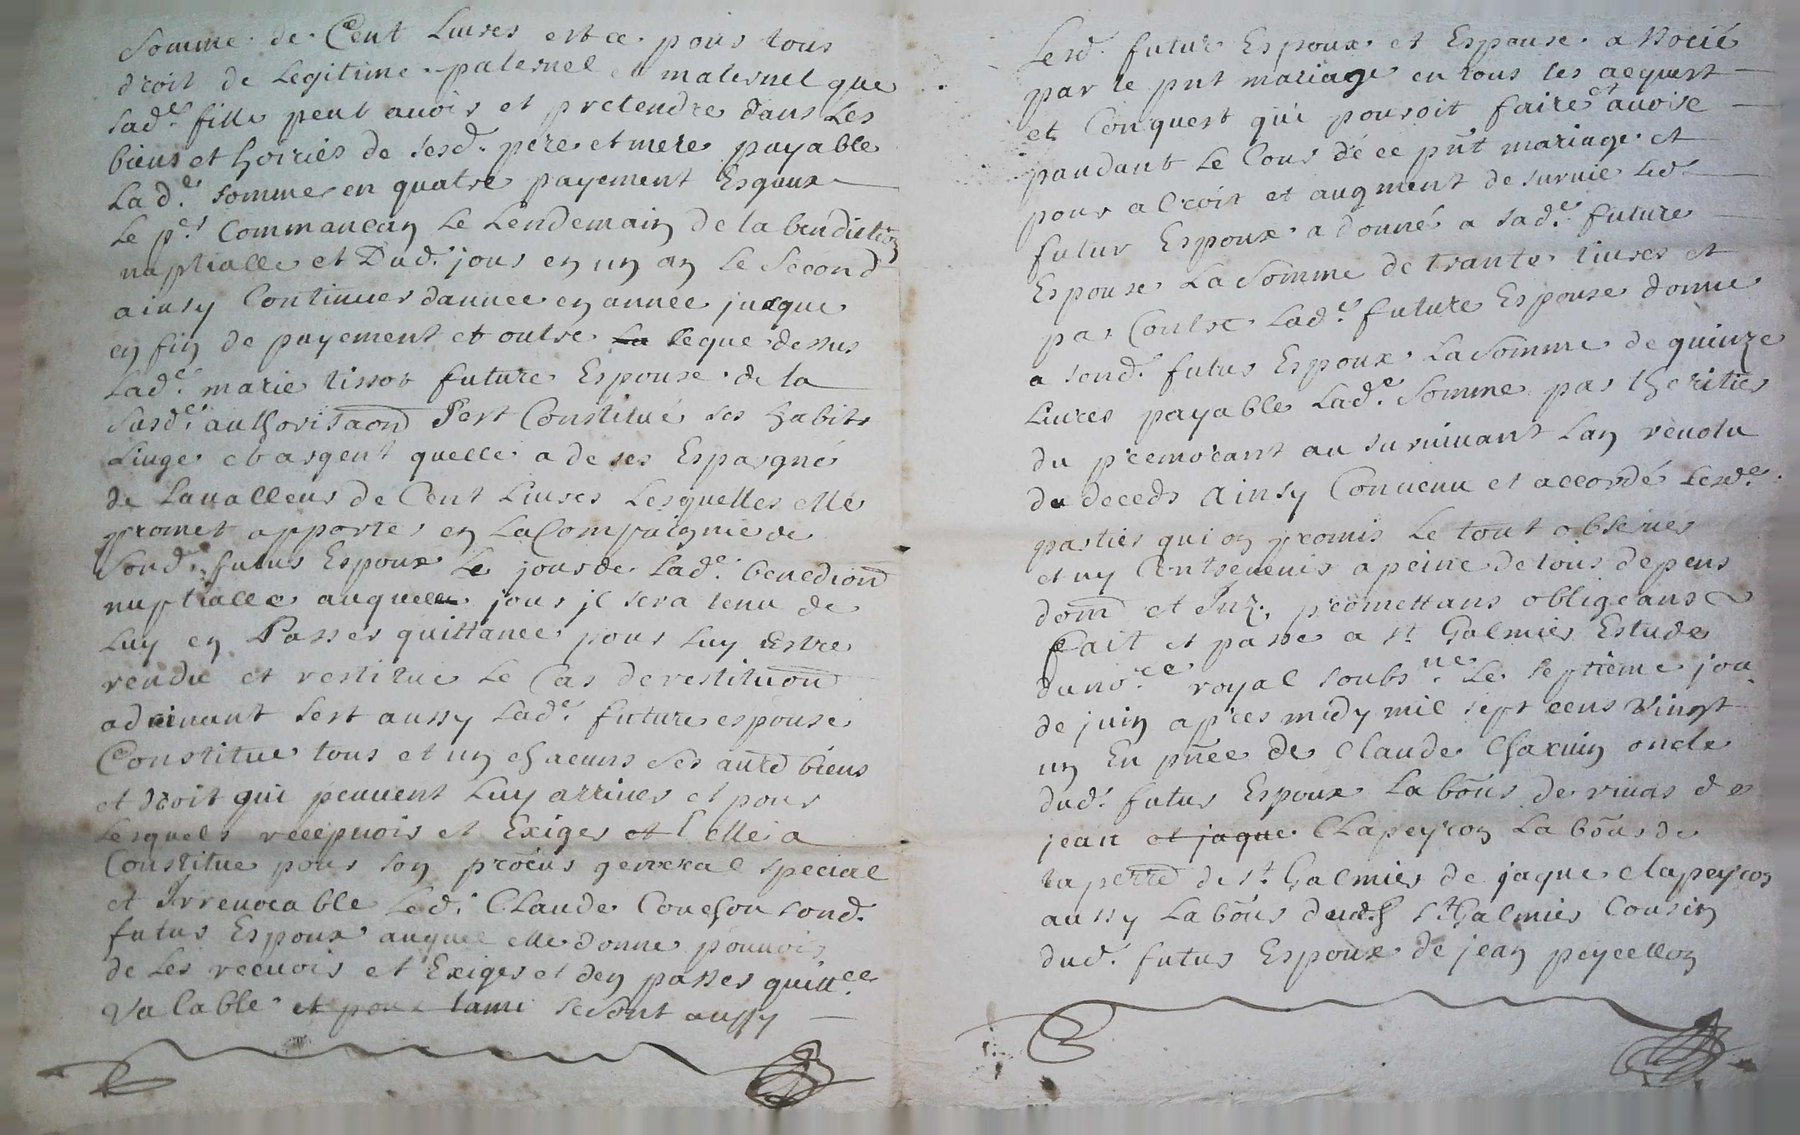 Somme de Cent Liures et ce pour tous
droit de Legitime paternel et maternel que
sad.e fille peut auoir et pretendre dans Les
biens et hoiries de sesd. pere et mere payable
Lad.e somme en quatre payement Esgaux
Le p.er Commancan Le Lendemain de la benediction
nuptialle et Dud. jour en un an Le Second
ainsy Continuer dannee en annee jusque
en fin de payement et outre La ceque dessus
Lad.e marie tissot future Espouse de la
susd.e authorisaon sest Constitué ses habits
Linge et argent quelle a de ses Espargne
de Lavalleur de Cent Liures Lesquelles elle
promet apporter en La Compagnie de
Sond. futur Espoux Le jour de Lad.e benedion
nuptialle auquel jour jl sera tenu de
Luy en Passer quittance pour Luy Estre
rendue et restitue Le Cas de restituon
aduenant sest aussy Lad.e future espouse
Constitue tous et un chacuns ses autd biens
et droit qui peuuent Luy arriuer et pour
Lesquels recepuoir et Exiger et Lelle a
Constitue pour son procur general special
et Jrreuocable Led. Claude Couchou sond.
futur Espoux auquel elle donne pouuoir
de Les receuoir et Exiger et den passer quitt.ce
valable et pour lami se sont aussy
Lesd. futur Espoux et Espouse associé
par le pnt mariage en tous les acquest
et Conquest qui pouroit faire et auoire
pandant Le Cour de ce pnt mariage et
pour acroit et augment de suruie Led.
futur Espoux a donné a Lad.e future
Espouse La Somme de trante liures et
par Contre Lad.e future Espouse donne
a sond. futur Espoux La Somme de quinze
Liures payable Lad.e Somme par Lheritier
du premorant au suruiuant Lan reuolu
du deceds Ainsy Conuenu et accordé Lesd.
parties qui on promis Le tout obseruer
et ny Contreuenir a peine de tous depens
dom et Jnz. promettans obligeans
fait et passé a st Galmier Estude
du no.re royal soubs.ne Le septieme jou
de juin apres midy mil sept cens vingt
un En pnce de Claude Charuin oncle
dud. futur Espoux Labour de riuas de
jean et jaque Clapeyron Labour de
la petite de st Galmier de jaque clapeyron
aussy Labour dud st Galmier Cousin
dud. futur Espoux de jean peycellon